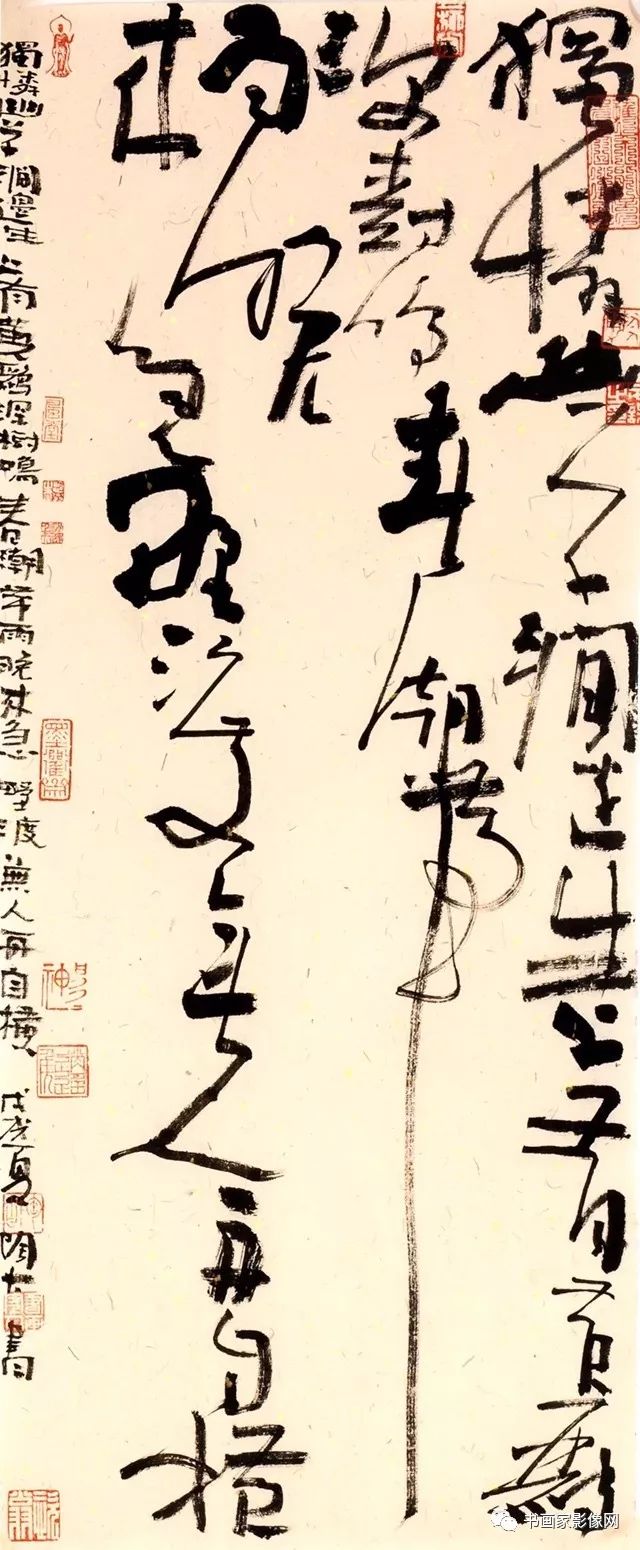 獨憐幽草澗邊生上有黃鸝
深樹鳴春潮帶
雨晚
來急野渡無人舟自橫
獨憐幽草澗邊生上有黃鸝深樹鳴春潮帶雨晚來急野渡無人舟自橫 戊戌夏 書
书画家影像网